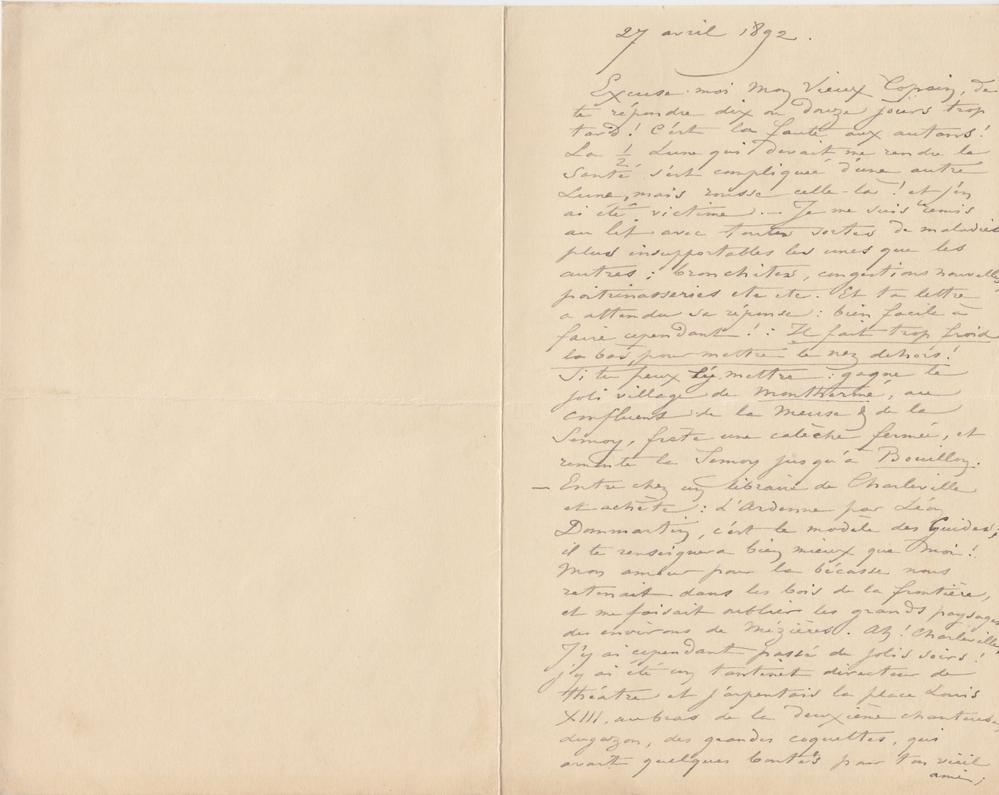 27 avril 1892.
Excuse-moi mon vieux Copain, de
te répondre dix ou douze jours trop
tard! C'est la faute aux autans!
La ½ Lune qui devait me rendre la
santé s'est compliquée d'une autre
Lune, mais rousse celle-là! et j'en
ai été victime... Je me suis remis
au lit avec toutes sortes de maladies
plus insupportables les unes que les
autres: bronchites, congestions nouvelles,
poitrinasseries etc etc. Et ta lettre
a attendu sa réponse: bien facile à
faire cependant!: Il fait trop froid
la bas, pour mettre le nez dehors!
Si tu peux l'y mettre: gagne le
joli village de Monthermé, au
confluent de la Meuse & de la
Semoy, frète une calèche fermée, et
remonte la Semoy jusqu'à Bouillon.
— Entre chez un libraire de Charleville
et achète: L'Ardenne par Léon
Dommartin, c'est le modèle des Guides;
il te renseignera bien mieux que moi!
Mon amour pour la bécasse nous
retenait dans les bois de la frontière,
et me faisait oublier les grands paysages
des environs de Mézières. Ah! Charleville,
J'y ai cependant passé de jolis soirs!
j'y ai été un tantinet directeur de
théâtre et j'arpentais la place Louis
XIII, au bras de la deuxième chanteuse
dugazon, des grandes coquettes, qui
avait quelques bontés pour ton vieil
ami;